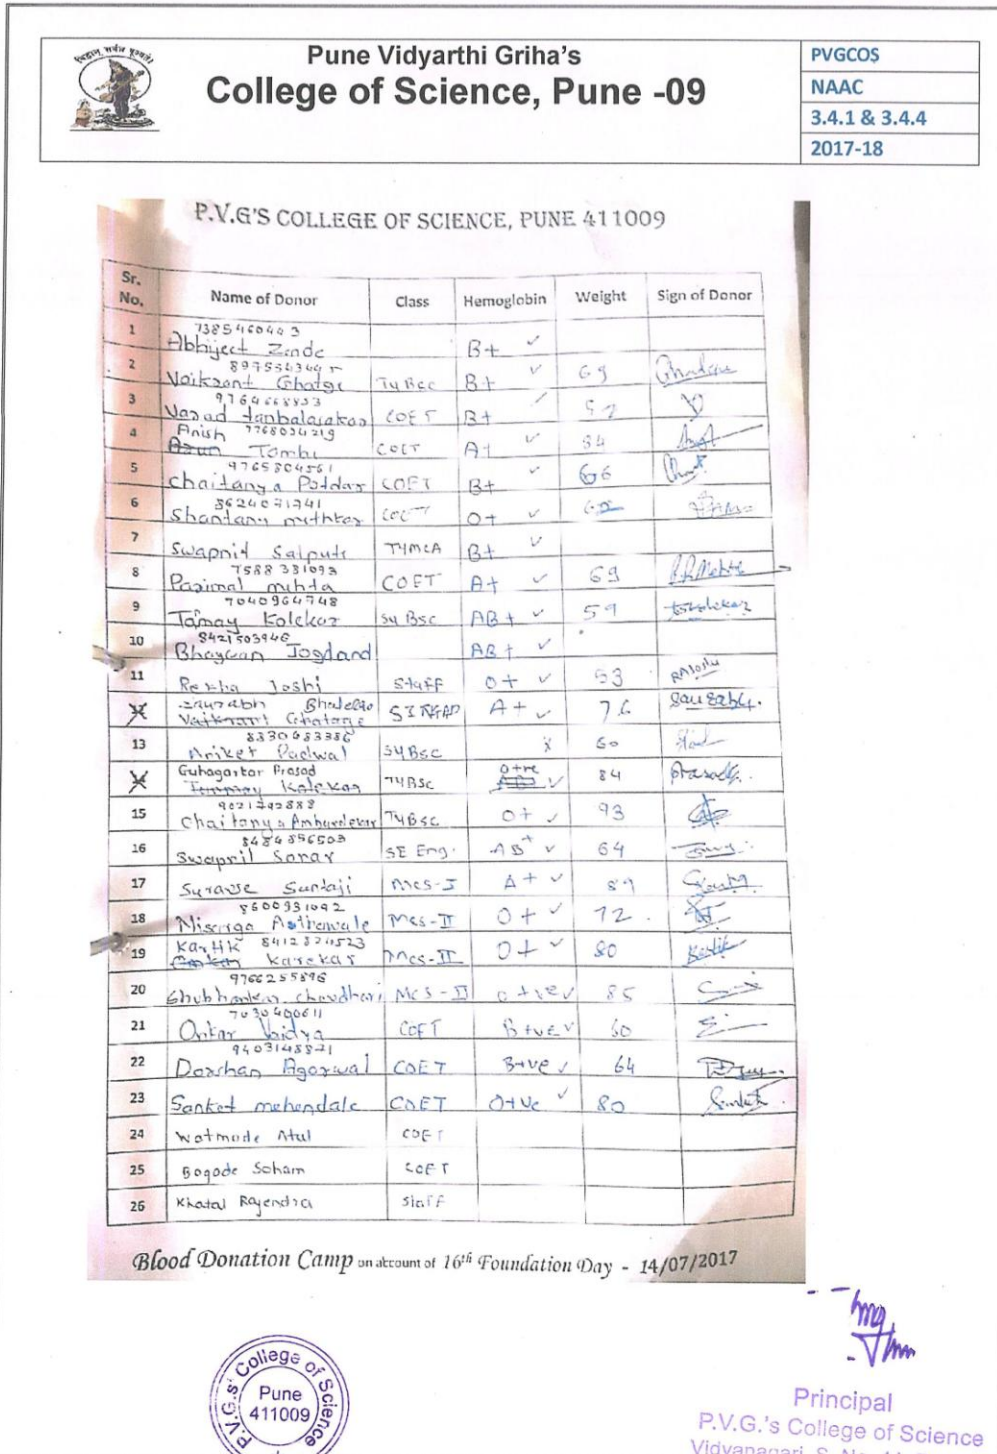 Pune Vidyarthi Griha's
College of Science, Pune -09
PVGCOS
NAAC
3.4.1 & 3.4.4
2017-18
P.V.G'S COLLEGE OF SCIENCE, PUNE 411009
Sr. No. Name of Donor Class Hemoglobin Weight Sign of Donor
1 7385460443 Abhijeet Zende B+ ✓
2 Vaikrant Ghatge TyBsc B+ ✓ 69
3 9764668853 COET B+ 52
4 Anish 7768034219 Tambi COET A+ ✓ 84
5 9765804561 Chaitanya Poddar COET B+ ✓ 66
6 8624071741 Shantanu COET O+ ✓
7 Swapnil Satpute TYMCA B+ ✓
8 7588331093 Parimal mehta COET A+ ✓ 69 P.R.Mehta
9 7040964748 Tanmay Kolekar Sy Bsc AB+ ✓ 59 tskolekar
10 8421503946 Bhagwan Jogdand AB+ ✓
11 Rekha Joshi Staff O+ ✓ 53 RMJoshi
Saurabh Bhalerao SINHGAD A+ ✓ 76 Saurabh.
13 8330683386 Aniket Padwal SyBsc x 60
Guhagarkar Prasad TyBsc O+ve ✓ 84 Prasad
15 9021792888 Chaitanya Ambardekar TyBsc O+ ✓ 93
16 8484856503 Swapnil SE Eng. AB+ ✓ 64
17 Suravse Suntaji Mcs-I A+ ✓ 89
18 8600931092 Nisarga Mcs-II O+ ✓ 72.
19 Kartik 8412824523 Karekar Mcs-II O+ ✓ 80 Kartik
20 9766255896 Shubhankar Choudhari Mcs-II O+ve ✓ 85
21 7030400611 Onkar Vaidya COET B+ve ✓ 60
22 9403148821 Darshan Agarwal COET B+ve ✓ 64
23 Sanket mehendale COET O+ve ✓ 80 Sanket
24 Watmode Atul COET
25 Bogode Soham COET
26 Khatal Rajendra Staff
Blood Donation Camp on account of 16th Foundation Day - 14/07/2017
P.V.G.s' College of Science
Pune
411009
Principal
P.V.G.'s College of Science